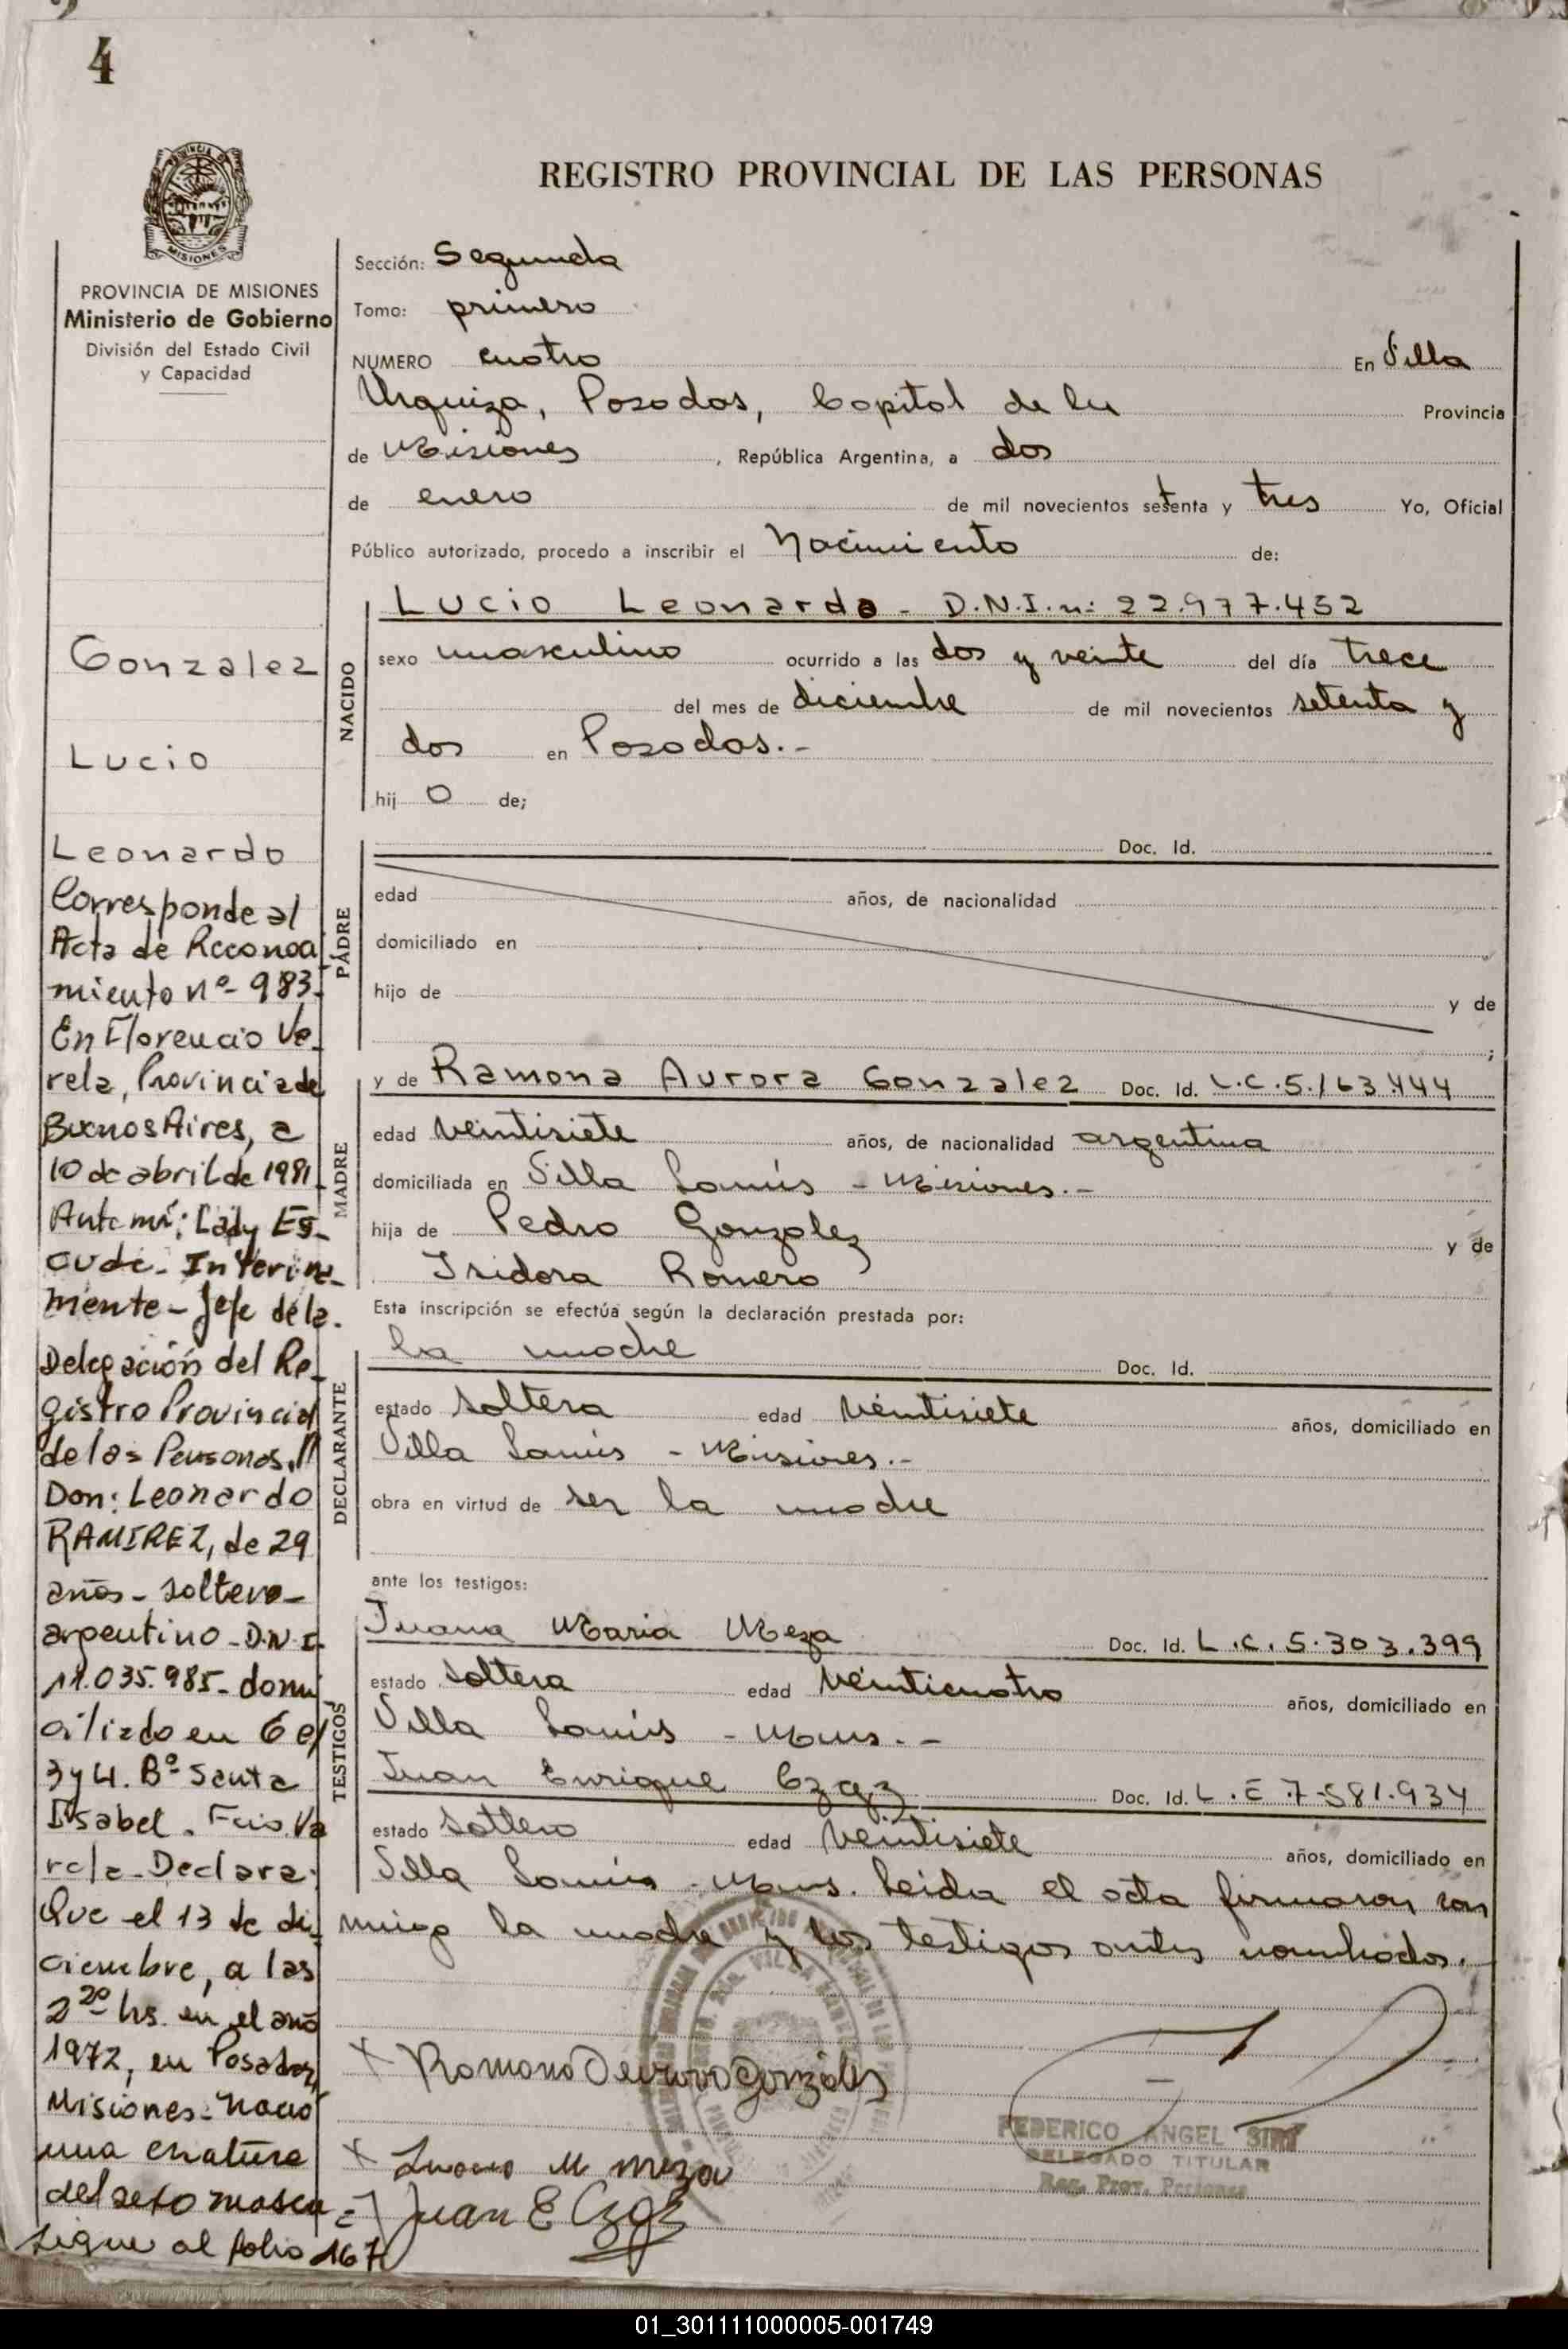 4
REGISTRO PROVINCIAL DE LAS PERSONAS
MISIONES
PROVINCIA DE MISIONES
Ministerio de Gobierno
División del Estado Civil
y Capacidad
Sección: Segunda
Tomo: primero
NUMERO cuatro En Villa
Urquiza, Posadas, Capital de la Provincia
de Misiones, República Argentina, a dos
de enero de mil novecientos setenta y tres Yo, Oficial
Público autorizado, procedo a inscribir el Nacimiento de:
NACIDO
Lucio Leonardo - D.N.I. n: 22.977.452
sexo masculino ocurrido a las dos y veinte del día trece
del mes de diciembre de mil novecientos setenta y
dos en Posadas.-
hij o de;
PADRE
Doc. Id.
edad años, de nacionalidad
domiciliado en
hijo de y de
;
MADRE
y de Ramona Aurora Gonzalez Doc. Id. L.C.5.163.444
edad veintisiete años, de nacionalidad argentina
domiciliada en Villa Lanús - Misiones.-
hija de Pedro Gonzalez y de
Isidora Romero
Esta inscripción se efectúa según la declaración prestada por:
DECLARANTE
la madre Doc. Id.
estado soltera edad veintisiete años, domiciliado en
Villa Lanús - Misiones.-
obra en virtud de ser la madre
ante los testigos:
TESTIGOS
Juana Maria Meza Doc. Id. L.C. 5.303.399
estado soltera edad veinticuatro años, domiciliado en
Villa Lanús - Mnes.-
Juan Enrique Doc. Id. L.E 7.581.934
estado soltero edad veintisiete años, domiciliado en
Villa Lanús - Mnes. Leída el acta firmaron con
migo la madre y los testigos antes nombrados.
x Ramona Aurora Gonzáles
x Juana M meza
Juan E
FEDERICO ANGEL
DELEGADO TITULAR
Reg. Prov. Personas
Gonzalez
Lucio
Leonardo
Corresponde al
Acta de Reconoci
miento nº- 983-
En Florencio Va-
rela, Provincia de
Buenos Aires, a
10 de abril de 1981
Ante mí: Lady Es-
cude- Interina-
mente- Jefe de la
Delegación del Re-
gistro Provincial
de las Personas,
Don: Leonardo
RAMIREZ, de 29
años - soltero-
argentino - D.N.I-
11.035.985- domi
ciliado en 6 e/
3 y 4. Bº Santa
Isabel. Fcio. Va
rela- Declara:
Que el 13 de di
ciembre, a las
2 20 hs. en el año
1972, en Posadas,
Misiones- nació
una criatura
del sexo mascu=
sigue al folio 167
01_301111000005-001749